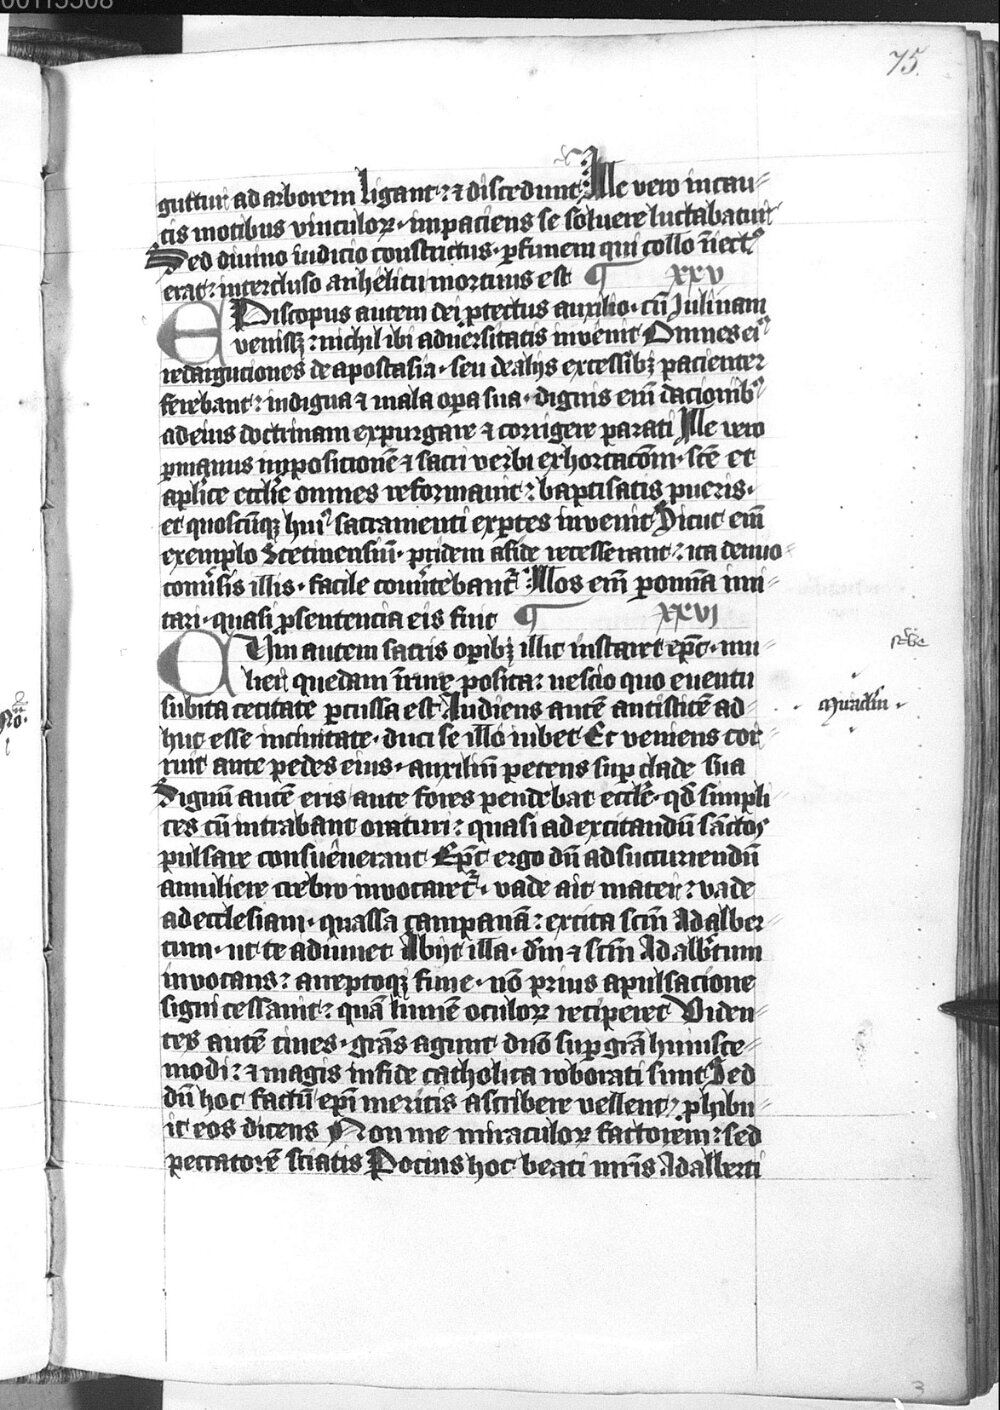 00113308
75.
guttur ad arborem ligant· ⁊ discedunt Ille vero incau⸗
tis motibus vinculoꝝ· impaciens se soluere luctabatur
Sed diuino iudicio constrictus· ꝑ funem qui collo īnectꝰ
erat· intercluso anhelitu mortuus est ¶ xxv
EPiscopus autem dei ꝓtectus auxilio· cū Julinam
venissꝫ· nichil ibi aduersitatis inuenit Omnes eī
redarguciones de apostasia· seu de alijs excessibꝫ pacienter
ferebant· indigna ⁊ mala oꝑa sua· dignis em̄ c̄acionibꝰ
ad eius doctrinam expurgare ⁊ corrigere parati Ille vero
ꝑ manus imposicionē ⁊ sacri verbi exhortacōm· scē et
aplice eccliē omnes reformauit· baptisatis pueris·
et quoscūqꝫ huiꝰ sacramenti exꝑtes inuenit Sicut em̄
exemplo Stetinensiū· pridem a fide recesserant· ita denuo⸗
conuersis illis· facile conuertebantᷣ Illos em̄ ꝑ om̄ia imi⸗
tari· quasi ꝓ sentencia eis fuit ¶ xxvi
CVm autem sacris oꝑibꝫ illic instaret ep̄c· mu⸗
lier quedam īrine posita· nescio quo euentu
subita cecitate ꝑcussa est Audiens autē antistitē ad⸗
huc esse in ciuitate· duci se illo iubet Et veniens cor⸗
ruit ante pedes eius· auxiliū petens suꝑ clade sua
Signū autē eris ante fores pendebat ecclē· qd̄ simpli
ces cū intrabant oraturi· quasi ad excitandū sanctos
pulsare consueuerant Ep̄c ergo dū ad succurrendū
a muliere crebro inuocaretᷣ· vade ait mater· vade
ad ecclesiam· quassa campanā· excita scm̄ Adalber
tum· ut te adiuuet Abijt illa· dm̄ ⁊ scm̄ Adalbertum
inuocans· arreptoqꝫ fune· nō prius a pulsacione
signi cessauit· quā lumē oculoꝝ reciperet Viden⸗
tes autē ciues· gr̄as agunt dn̄o suꝑ gr̄a huiusce⸗
modi· ⁊ magis in fide catholica roborati sunt Sed
dū hoc factū ep̄i meritis ascribere vellent· ꝓhibu⸗
it eos dicens Non me miraculoꝝ factorem· sed
peccatorē sciatis Pocius hoc beati mr̄is Adalberti
Miraclm̄
No.
3